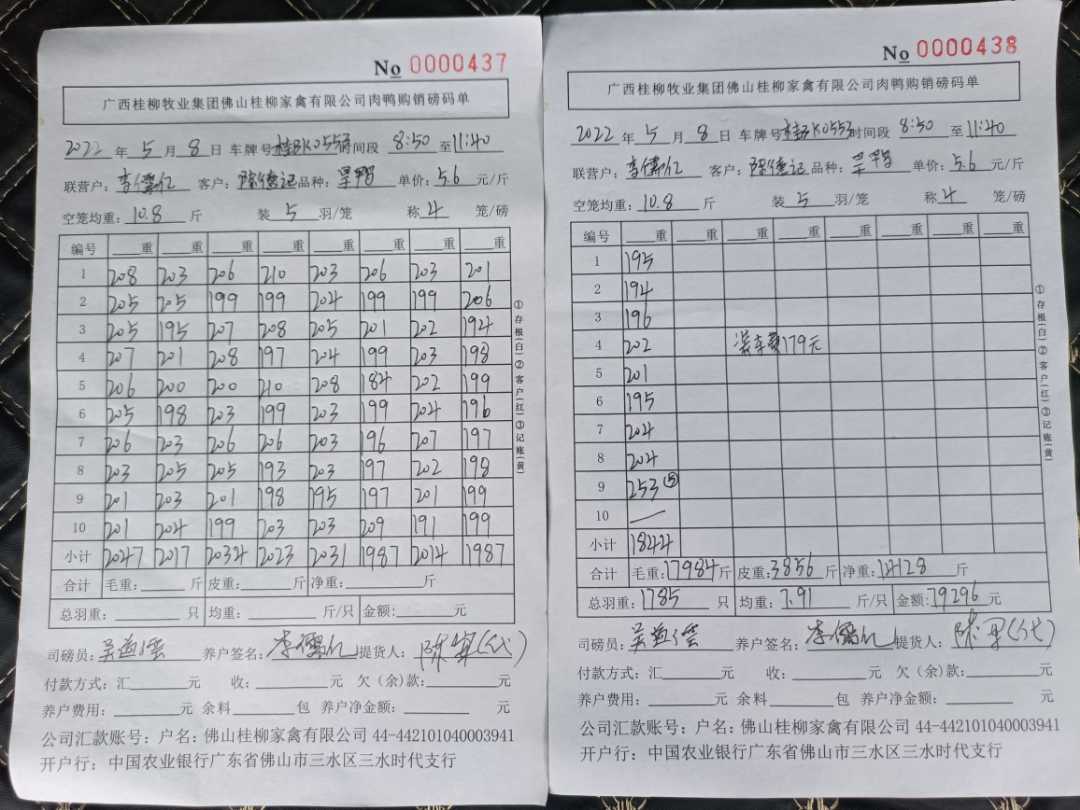 No 0000437
广西桂柳牧业集团佛山桂柳家禽有限公司肉鸭购销磅码单
2022 年 5 月 8 日 车牌号 时间段 8:50 至 11:40
联营户: 客户: 陈德记 品种: 旱鸭 单价: 5.6 元/斤
空笼均重: 10.8 斤 装 5 羽/笼 称 4 笼/磅
编号 重 重 重 重 重 重 重 重
1 208 203 206 210 203 206 203 201
2 205 205 199 199 204 199 199 206
3 205 195 207 208 205 201 202 194
4 207 201 208 197 204 199 203 198
5 206 200 200 210 208 184 202 199
6 205 198 203 199 203 199 204 196
7 206 203 206 206 203 196 207 197
8 203 205 205 193 203 197 202 198
9 201 203 201 198 195 197 201 199
10 201 204 199 203 203 209 191 199
小计 2047 2017 2034 2023 2031 1987 2014 1987
合计 毛重: 斤 皮重: 斤 净重: 斤
总羽重: 只 均重: 斤/只 金额: 元
司磅员: 养户签名: 提货人: (代)
付款方式: 汇 元 收: 元 欠(余)款: 元
养户费用: 元 余料 包 养户净金额: 元
公司汇款账号: 户名: 佛山桂柳家禽有限公司 44-442101040003941
开户行: 中国农业银行广东省佛山市三水区三水时代支行
①存根(白)②客户(红)③记账(黄)
No 0000438
广西桂柳牧业集团佛山桂柳家禽有限公司肉鸭购销磅码单
2022 年 5 月 8 日 车牌号 时间段 8:50 至 11:40
联营户: 客户: 陈德记 品种: 旱鸭 单价: 5.6 元/斤
空笼均重: 10.8 斤 装 5 羽/笼 称 4 笼/磅
编号 重 重 重 重 重 重 重 重
1 195
2 194
3 196
4 202 装车费179元
5 201
6 195
7 204
8 204
9 253 ⑤
10 —
小计 1844
合计 毛重: 17984 斤 皮重: 3856 斤 净重: 14128 斤
总羽重: 1785 只 均重: 7.91 斤/只 金额: 79296 元
司磅员: 养户签名: 提货人: (代)
付款方式: 汇 元 收: 元 欠(余)款: 元
养户费用: 元 余料 包 养户净金额: 元
公司汇款账号: 户名: 佛山桂柳家禽有限公司 44-442101040003941
开户行: 中国农业银行广东省佛山市三水区三水时代支行
①存根(白)②客户(红)③记账(黄)